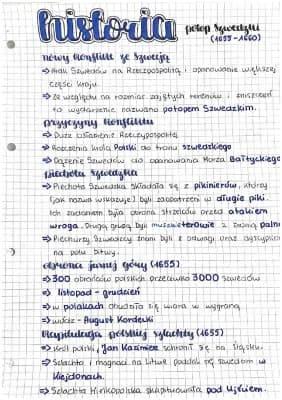 historia
potop Szwedzki
(1655-1660)
nowy konflikt ze Szwecją
⇒ Atak Szwedów na Rzeczpospolitą i opanowanie większej
części kraju.
⇒ Ze względu na rozmiar zajętych terenów i zniszczeń
to wydarzenie nazwano potopem Szwedzkim.
przyczyny konfliktu
⇒ Duże osłabienie Rzeczypospolitej
⇒ Roszczenia króla Polski do tronu szwedzkiego
⇒ Dążenie Szwedów do opanowania Morza Bałtyckiego
piechota Szwedzka
⇒ Piechota Szwedzka składała się z pikinierów, którzy
(jak nazwa wskazuje) byli zaopatrzeni w długie piki.
Ich zadaniem była obrona strzelców przed atakiem
wroga. Drugą grupą byli muszkieterowie z bronią palną
⇒ Piechurzy Szwedzcy znani byli z odwagi oraz dyscypliny
na polu bitwy.
obrona jasnej góry (1655)
⇒ 300 obrońców polskich przeciwko 3000 szwedów
⇒ listopad - grudzień
⇒ w polakach obudziła się wiara w wygraną
⇒ wódz - August Kordecki
kapitulacja polskiej szlachty (1655)
⇒ Król polski, Jan Kazimierz schronił się na Śląsku.
⇒ Szlachta i magnaci na Litwie poddali się szwedom w
Kiejdanach.
⇒ Szlachta Wielkopolska skapitulowała pod Ujściem.